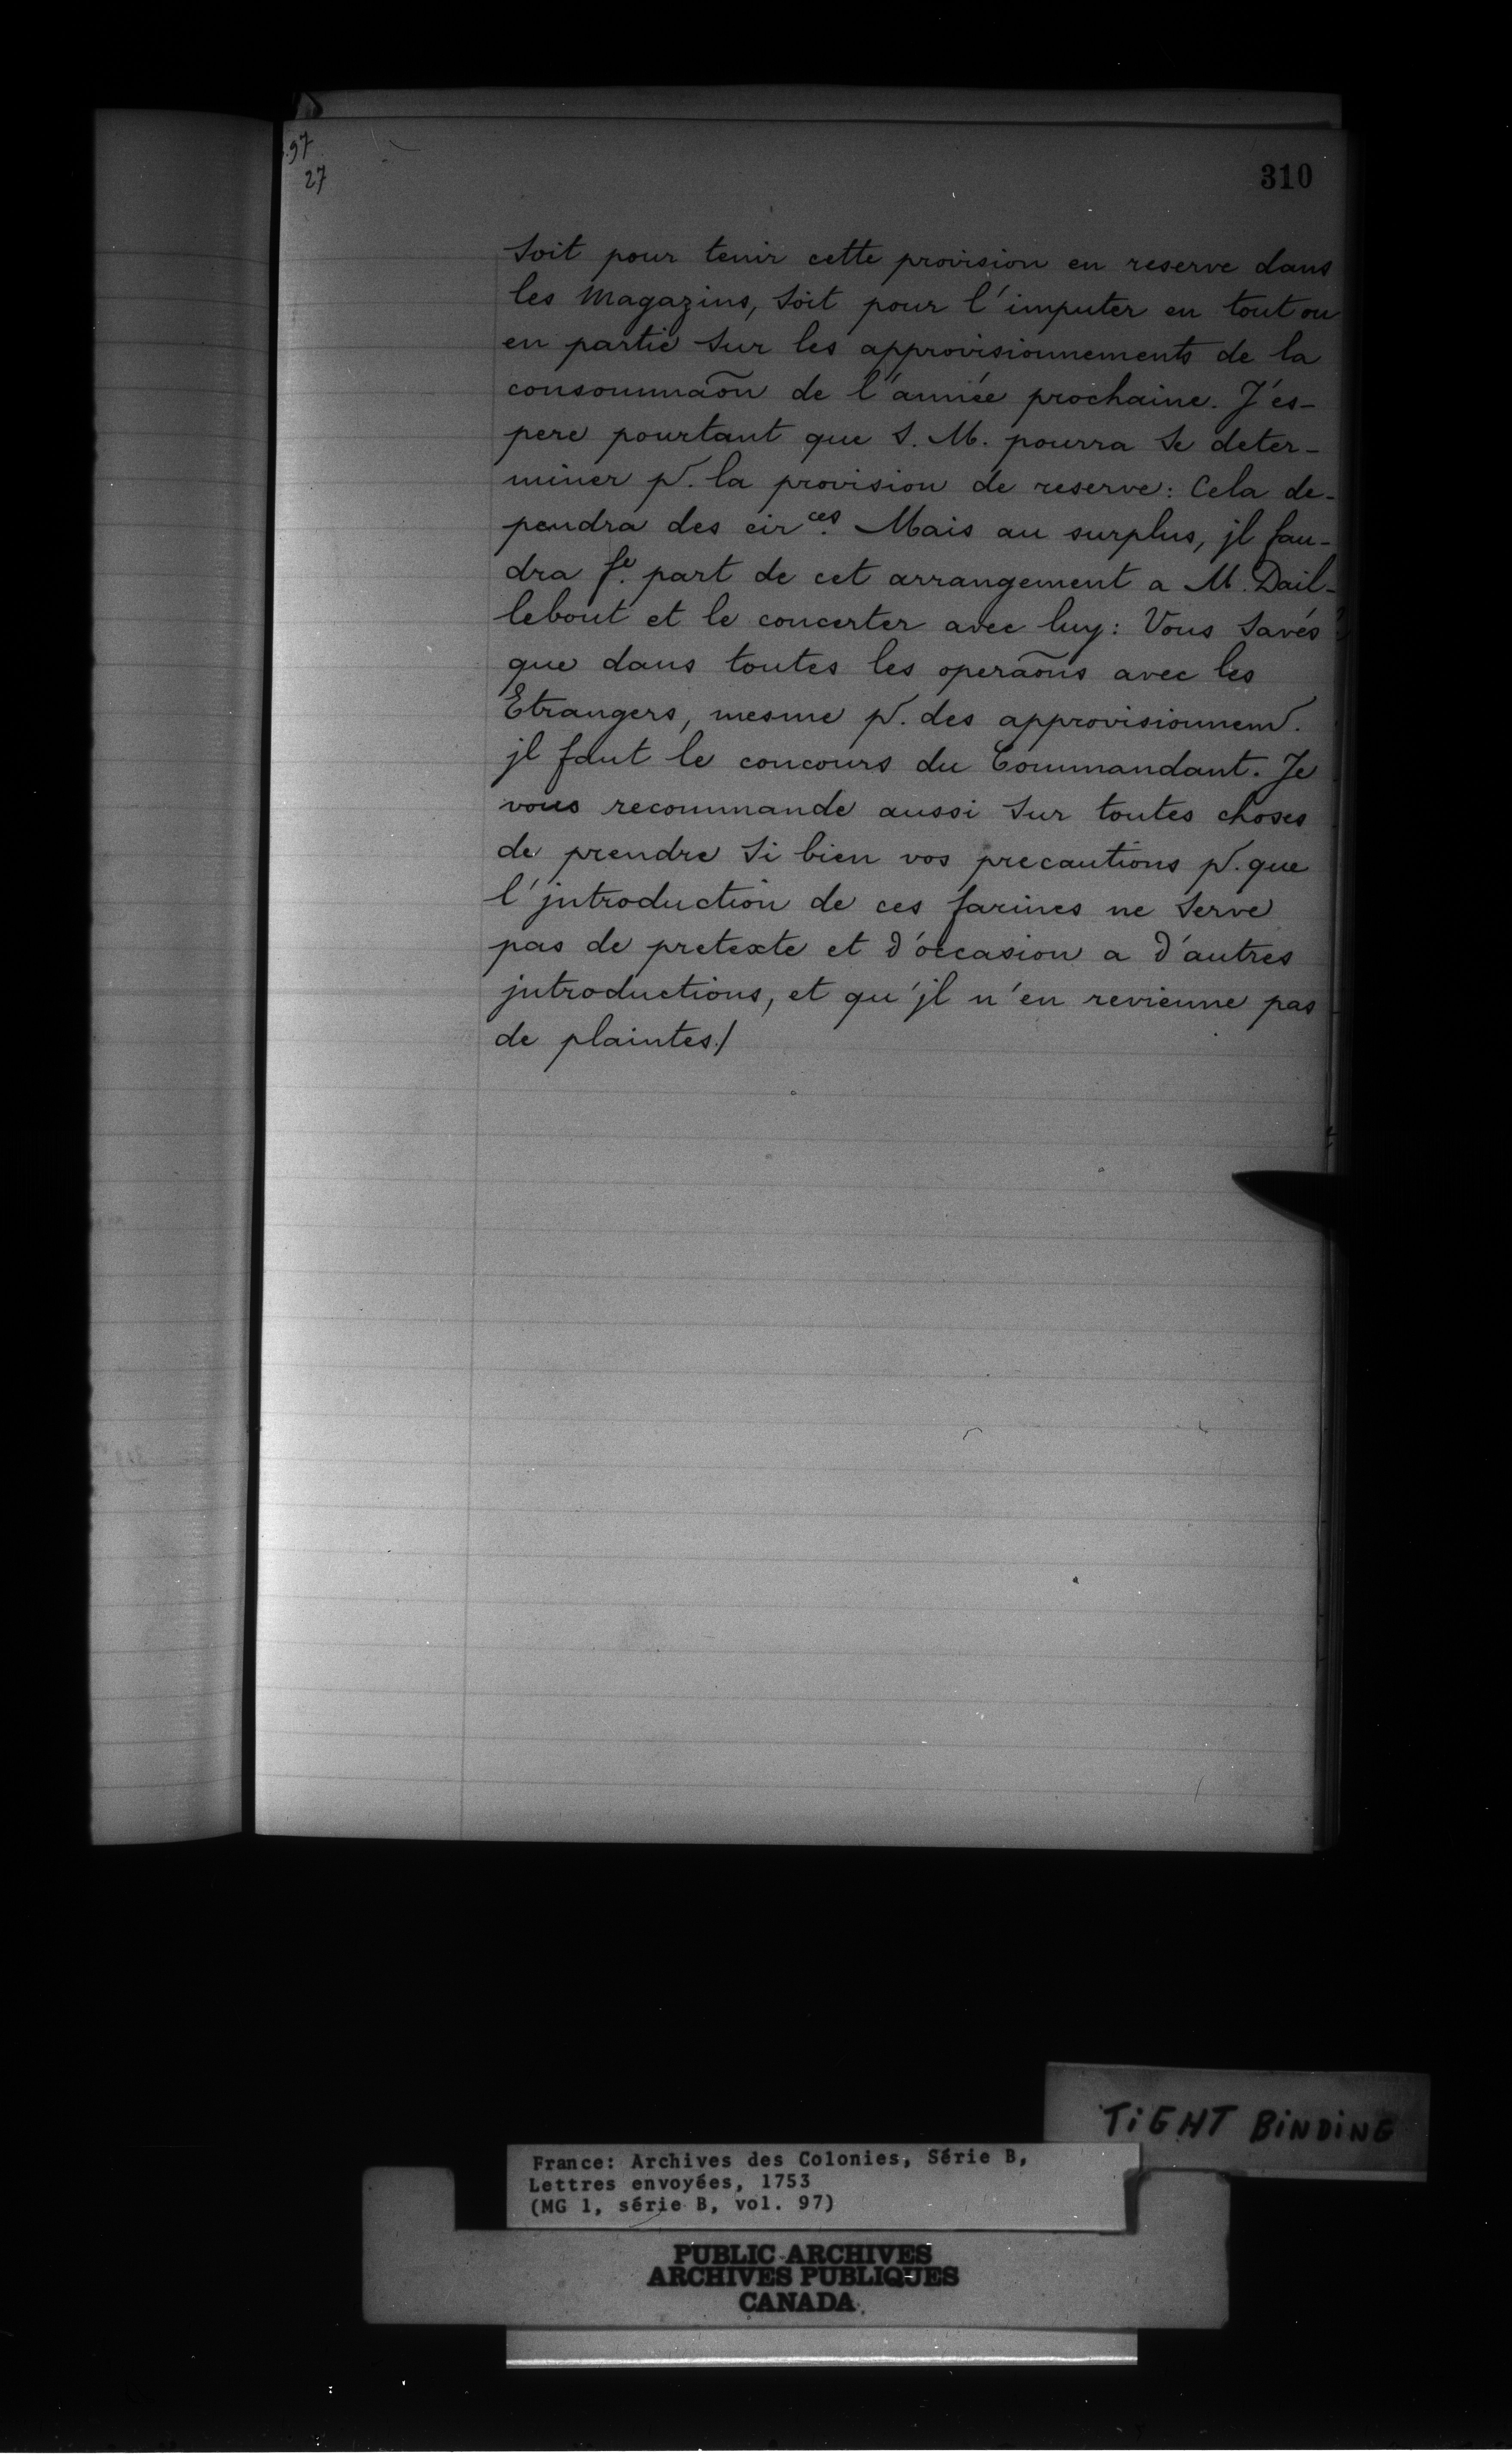 .97
27
310
Soit pour tenir cette provision en reserve dans
les Magazins, Soit pour l'imputer en tout ou
en partie Sur les approvisionnements de la
consommaõn de l'année prochaine. J'és-
pere pourtant que S. M. pourra Se deter-
miner pr. la provision de reserve: Cela de-
pendra des cir ces. Mais au surplus, jl fau-
dra fe. part de cet arrangement a M. Dail-
lebout et le concerter avec luy: Vous Savés
que dans toutes les operaõns avec les
Etrangers, mesme pr. des approvisionnem.
jl faut le concours du Commandant. Je
vous recommande aussi Sur toutes choses
de prendre Si bien vos precautions pr. que
l'jntroduction de ces farines ne Serve
pas de pretexte et d'occasion a d'autres
jntroductions, et qu'jl n'en revienne pas
de plaintes./
TiGHT BiNDiNG
France: Archives des Colonies, Série B,
Lettres envoyées, 1753
(MG 1, série B, vol. 97)
PUBLIC ARCHIVES
ARCHIVES PUBLIQUES
CANADA